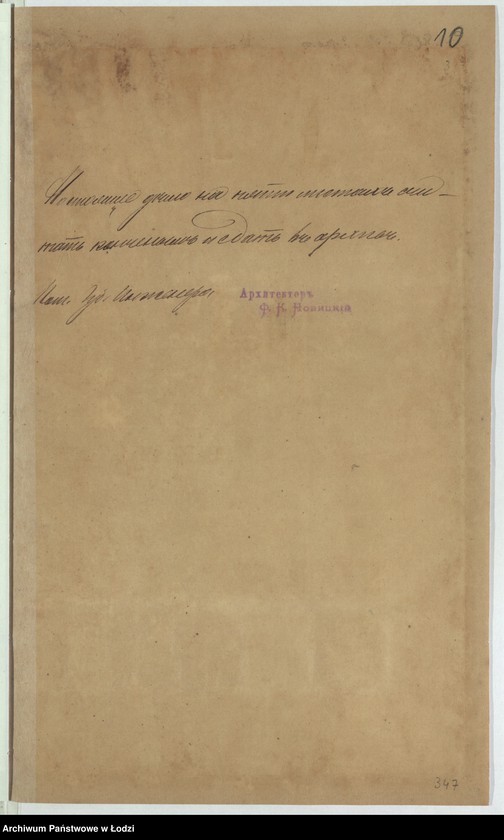 10
3
Настоящее дѣло на пяти листахъ счи-
тать конченнымъ и сдать въ архивъ.
Пом. Губ. Инженера
Архитекторъ
347
Archiwum Państwowe w Łodzi